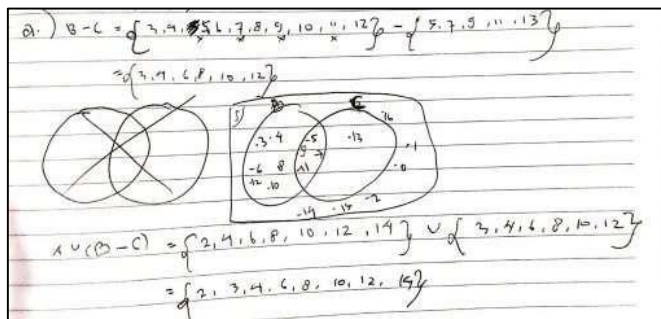 a.) B-C = {3,4,5,6,7,8,9,10,11,12} - {5,7,9,11,13}
= {3,4,6,8,10,12}
S B C
.3 .4 -5 .13 16
9 -7 .1
-6 8 .11 -0
12 -10
-14 -15 -2
A ∪ (B-C) = {2,4,6,8,10,12,14} ∪ {3,4,6,8,10,12}
= {2,3,4,6,8,10,12,14}